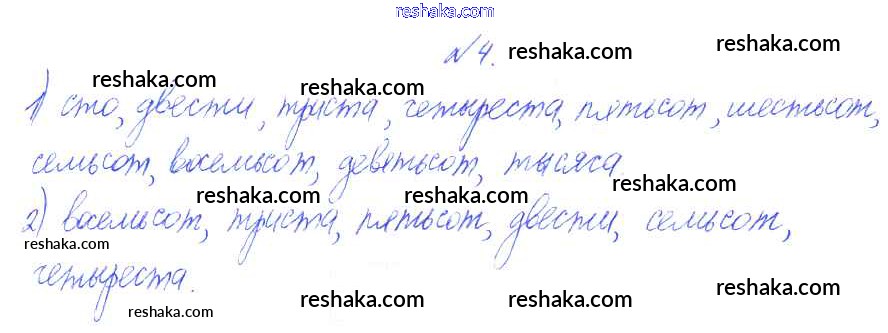 reshaka.com
№ 4. reshaka.com
reshaka.com reshaka.com
1) сто, двести, триста, четыреста, пятьсот, шестьсот,
reshaka.com reshaka.com reshaka.com
семьсот, восемьсот, девятьсот, тысяча.
reshaka.com reshaka.com reshaka.com
2) восемьсот, триста, пятьсот, двести, семьсот,
reshaka.com
четыреста.
reshaka.com reshaka.com reshaka.com reshaka.com